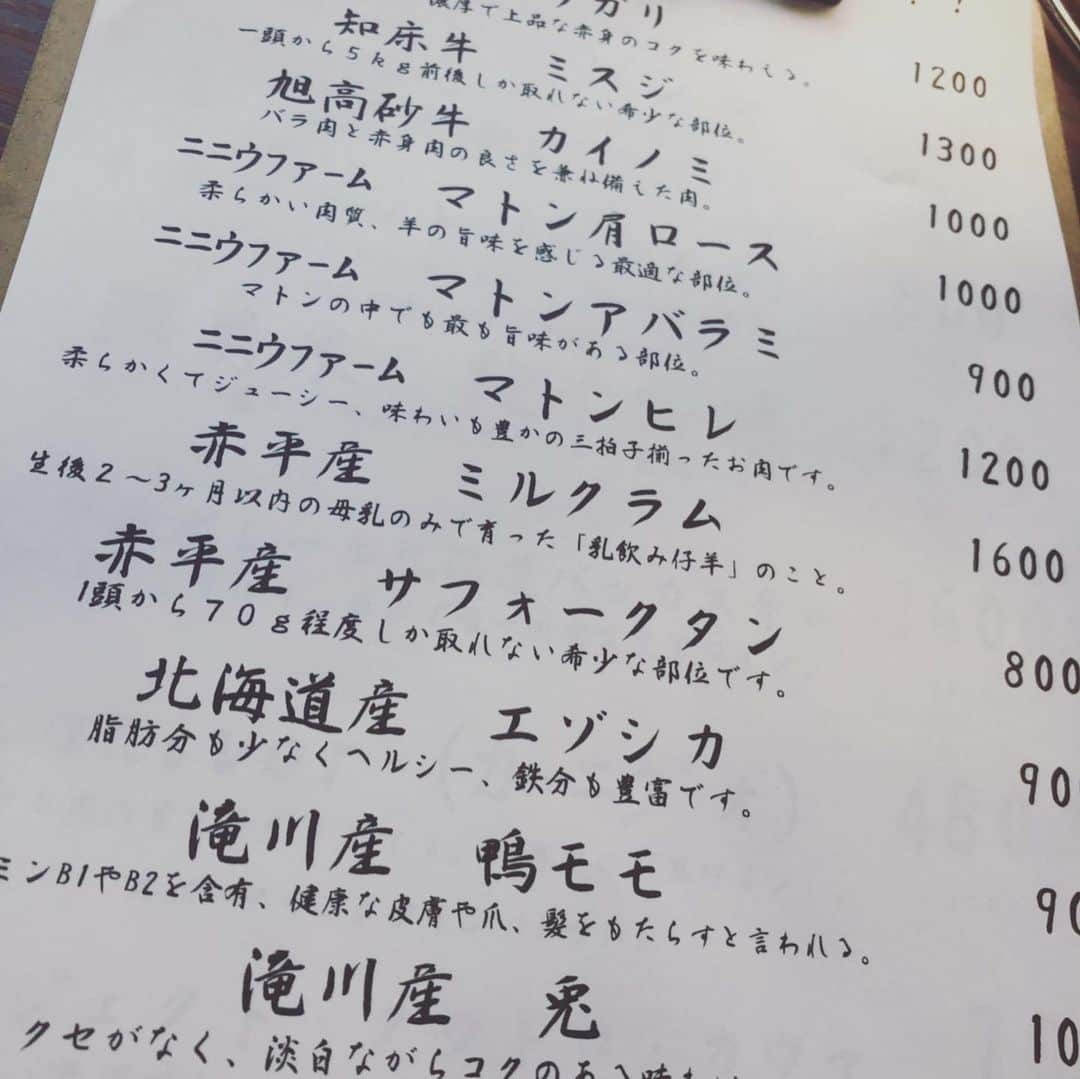 ! !
ガリ 1200
濃厚で上品な赤身のコクを味わえる。
知床牛 ミスジ 1300
一頭から5kg前後しか取れない希少な部位。
旭高砂牛 カイノミ 1000
バラ肉と赤身肉の良さを兼ね備えた肉。
ニニウファーム マトン肩ロース 1000
柔らかい肉質、羊の旨味を感じる最適な部位。
ニニウファーム マトンアバラミ 900
マトンの中でも最も旨味がある部位。
ニニウファーム マトンヒレ 1200
柔らかくてジューシー、味わいも豊かの三拍子揃ったお肉です。
赤平産 ミルクラム 1600
生後2〜3ヶ月以内の母乳のみで育った「乳飲み仔羊」のこと。
赤平産 サフォークタン 800
1頭から70g程度しか取れない希少な部位です。
北海道産 エゾシカ 90
脂肪分も少なくヘルシー、鉄分も豊富です。
滝川産 鴨モモ 90
ミンB1やB2を含有、健康な皮膚や爪、髪をもたらすと言われる。
滝川産 兎 10
クセがなく、淡白ながらコクのある味わ